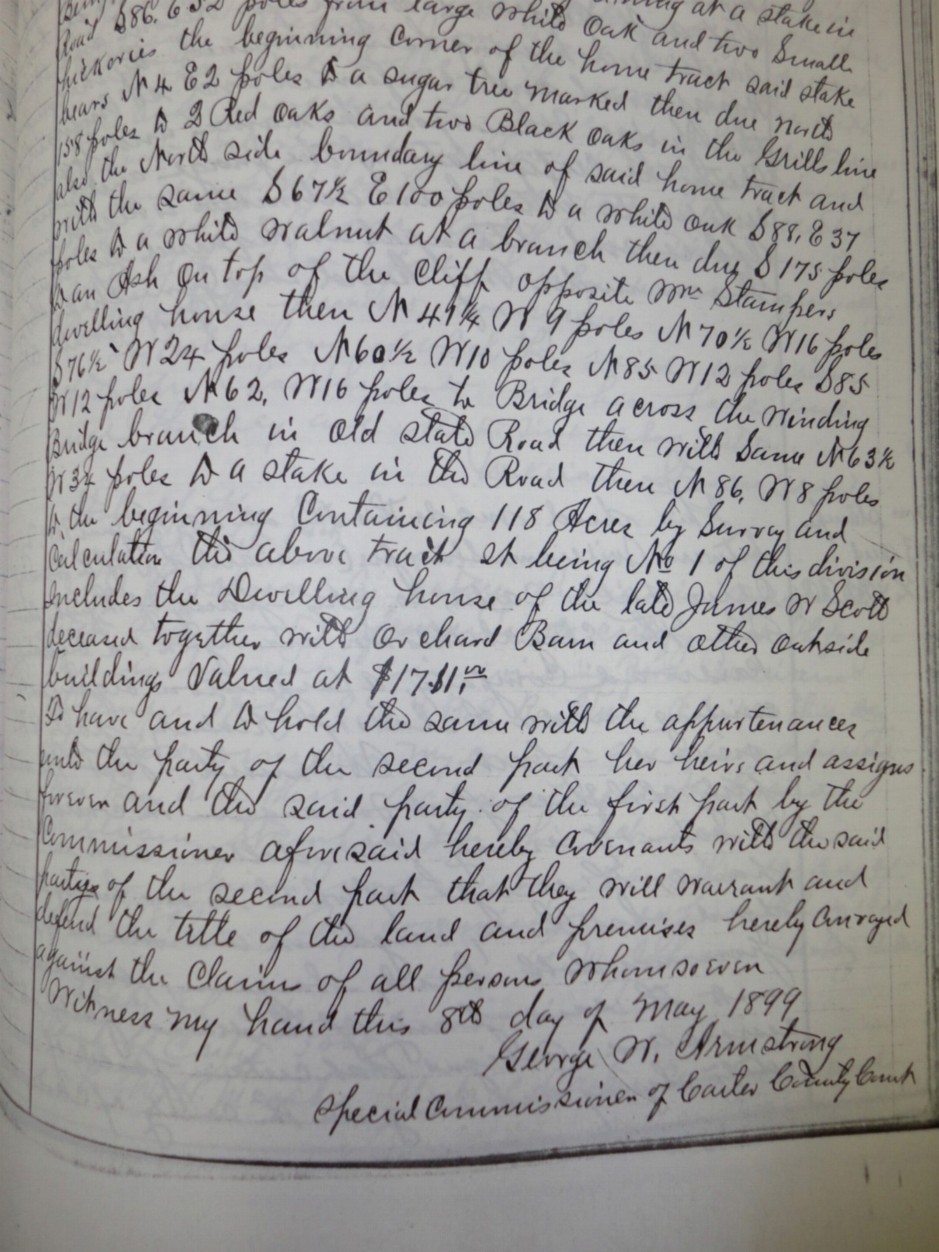 being at a stake in
Road S86, E32 poles from large white Oak and two Small
hickories the beginning Corner of the home tract said stake
bears N 4 E2 poles to a sugar tree marked then due north
158 poles to 2 Red Oaks and two Black Oaks in the Grills line
also the North side boundary line of said home tract and
with the same S 67½ E 100 poles to a white Oak S88, E 37
poles to a white walnut at a branch then due S 175 poles
to an Ash On top of the Cliff opposite Mrs Stampers
dwelling house then N 49¼ W 9 poles N 70½ W16 poles
S76½ W24 poles N60½ W10 poles N85 W12 poles S85
W12 poles N62, W16 poles to Bridge across the winding
Bridge branch in Old state Road then with Same N63½
W 37 poles to a stake in the Road then N 86, W8 poles
to the beginning Containing 118 Acres by Survey and
Calculation the above tract it being No 1 of this division
includes the Dwelling house of the late James W Scott
deceased together with Orchard Barn and other outside
buildings Valued at
To have and to hold the same with the appurtenances
unto the party of the second part her heirs and assigns
forever and the said party of the first part by the
Commissioner aforesaid hereby Covenants with the said
party of the second part that they will warrant and
defend the title of the land and premises hereby Conveyed
against the Claims of all persons Whomsoever
Witness my hand this 8th day of May 1899,
George W. Armstrong
Special Commissioner of Carter County Court